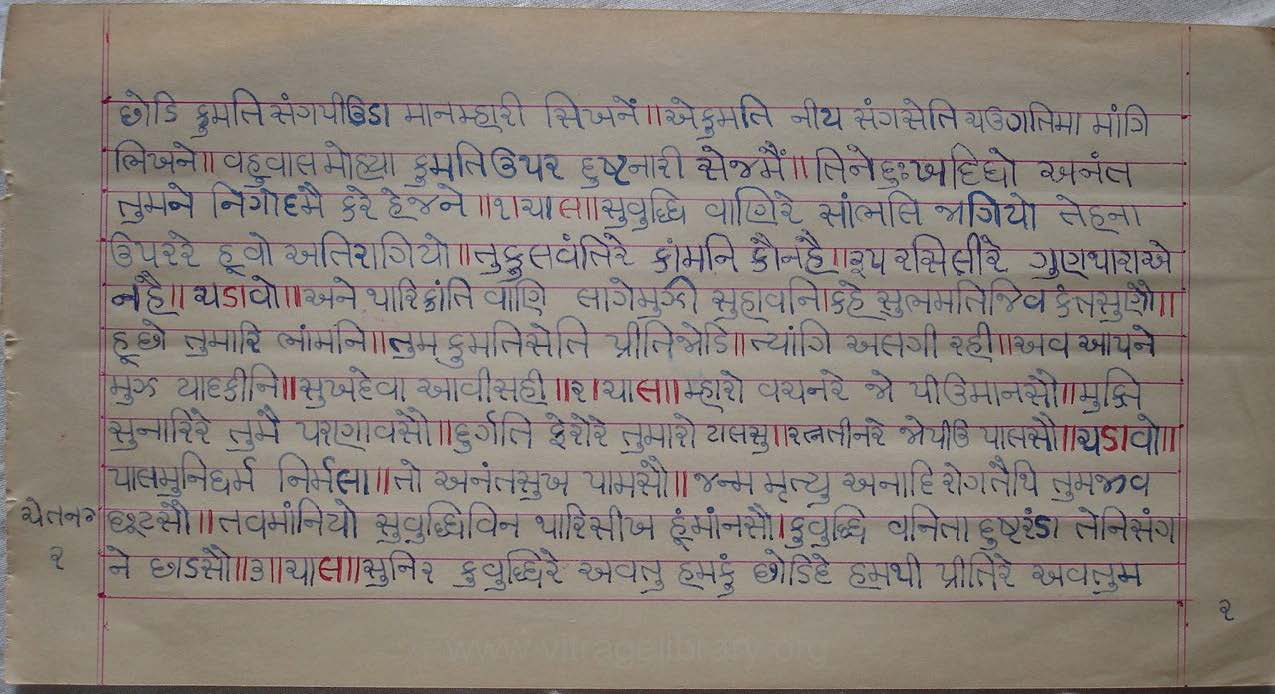 છોડિ કુમતિ સંગ પીઉડા માન મ્હારી સિખનેં॥ એ કુમતિ નીચ સંગ સેતિ ચઉગતિમા માંગિ
ભિખને॥ વહુવાલ મોહ્યા કુમતિ ઉપર દુષ્ટનારી સેજમૈં॥ તિને દુઃખ દિધો અનંત
તુમને નિગોદમૈ કરે હેજને ॥૧॥ ચાલ॥ સુવુદ્ધિ વાણિરે સાંભલિ જાગિયો તેહના
ઉપરરે હૂવો અતિરાગિયો॥ તુ કુલવંતિરે કાંમનિ કૌન હૈ॥ રૂપ રસિલીરે ગુણ થારા એ
ન હૈ॥ ચડાવો॥ અને થારિ ક્રાંતિ વાણિ લાગે મુઝી સુહાવનિ। કહે સુભમતિ જિવ કંત સુણૌ॥
હૂ છો તુમારિ ભાંમનિ॥ તુમ્ કુમતિસેતિ પ્રીતિ જોડિ॥ ત્યાંગિ અલગી રહી॥ અવ આપને
મુઝ યાદ કીનિ॥ સુખ દેવા આવી સહી ॥૨॥ ચાલ॥ મ્હારો વચનરે જો પીઉ માનસૌ॥ મુક્તિ
સુનારિરે તુમૈ પરણાવસૌ॥ દુર્ગતિ ફેરોરે તુમારો ટાલસુ॥ રત્નતીનરે જો પીઉ પાલસૌ॥ ચડાવો॥
પાલ મુનિધર્મ નિર્મલા॥ તો અનંત સુખ પામસૌ॥ જન્મ મૃત્યુ અનાદિ રોગતૈથિ તુમ જીવ
ચેતન૦ છૂટસૌ॥ તવ માંનિયો સુવુદ્ધિવિન થારિ સીખ હૂં માંનસૌ। કુવુદ્ધિ વનિતા દુષ્ટ રંડા તેનિ સંગ
૨ ને છાડસૌ॥૩॥ ચાલ॥ સુનિર કુવુદ્ધિરે અવતુ હમકું છોડિદે હમથી પ્રીતિરે અવ તુમ
૨
www.vitragelibrary.org